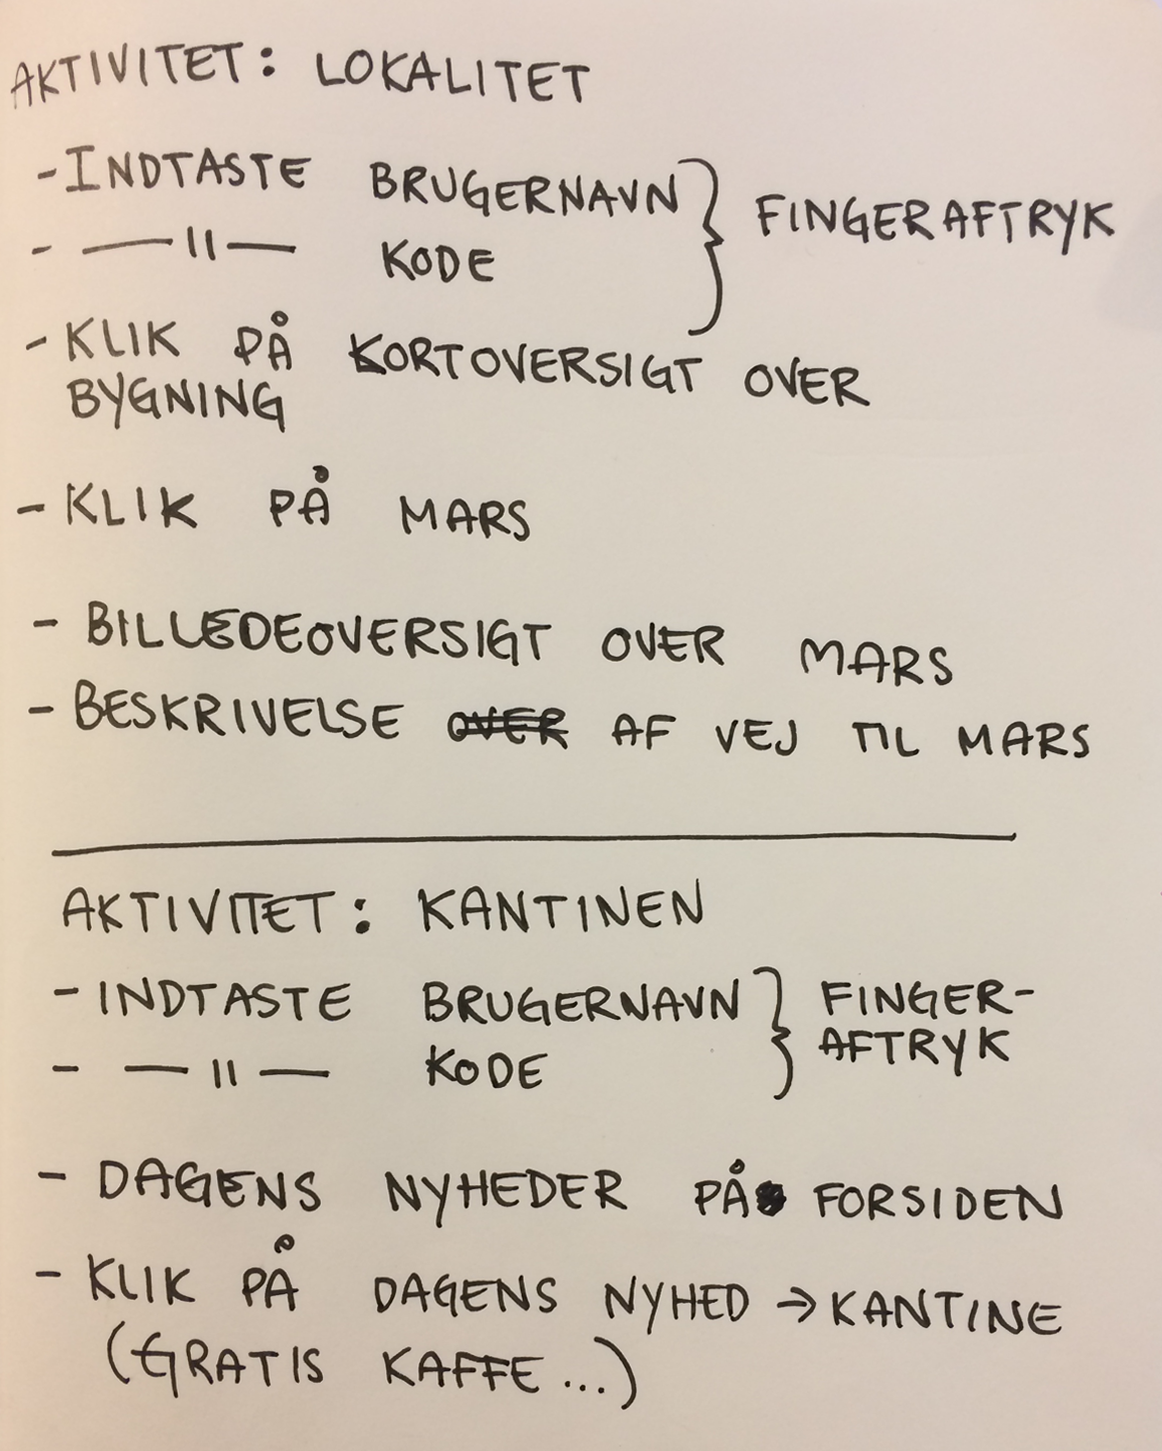 AKTIVITET: LOKALITET
- INDTASTE BRUGERNAVN } FINGERAFTRYK
- —— 11 —— KODE
- KLIK PÅ KORTOVERSIGT OVER
BYGNING
- KLIK PÅ MARS
- BILLEDEOVERSIGT OVER MARS
- BESKRIVELSE OVER AF VEJ TIL MARS
AKTIVITET: KANTINEN
- INDTASTE BRUGERNAVN } FINGER-
AFTRYK
- — 11 — KODE
- DAGENS NYHEDER PÅ FORSIDEN
- KLIK PÅ DAGENS NYHED → KANTINE
(GRATIS KAFFE...)